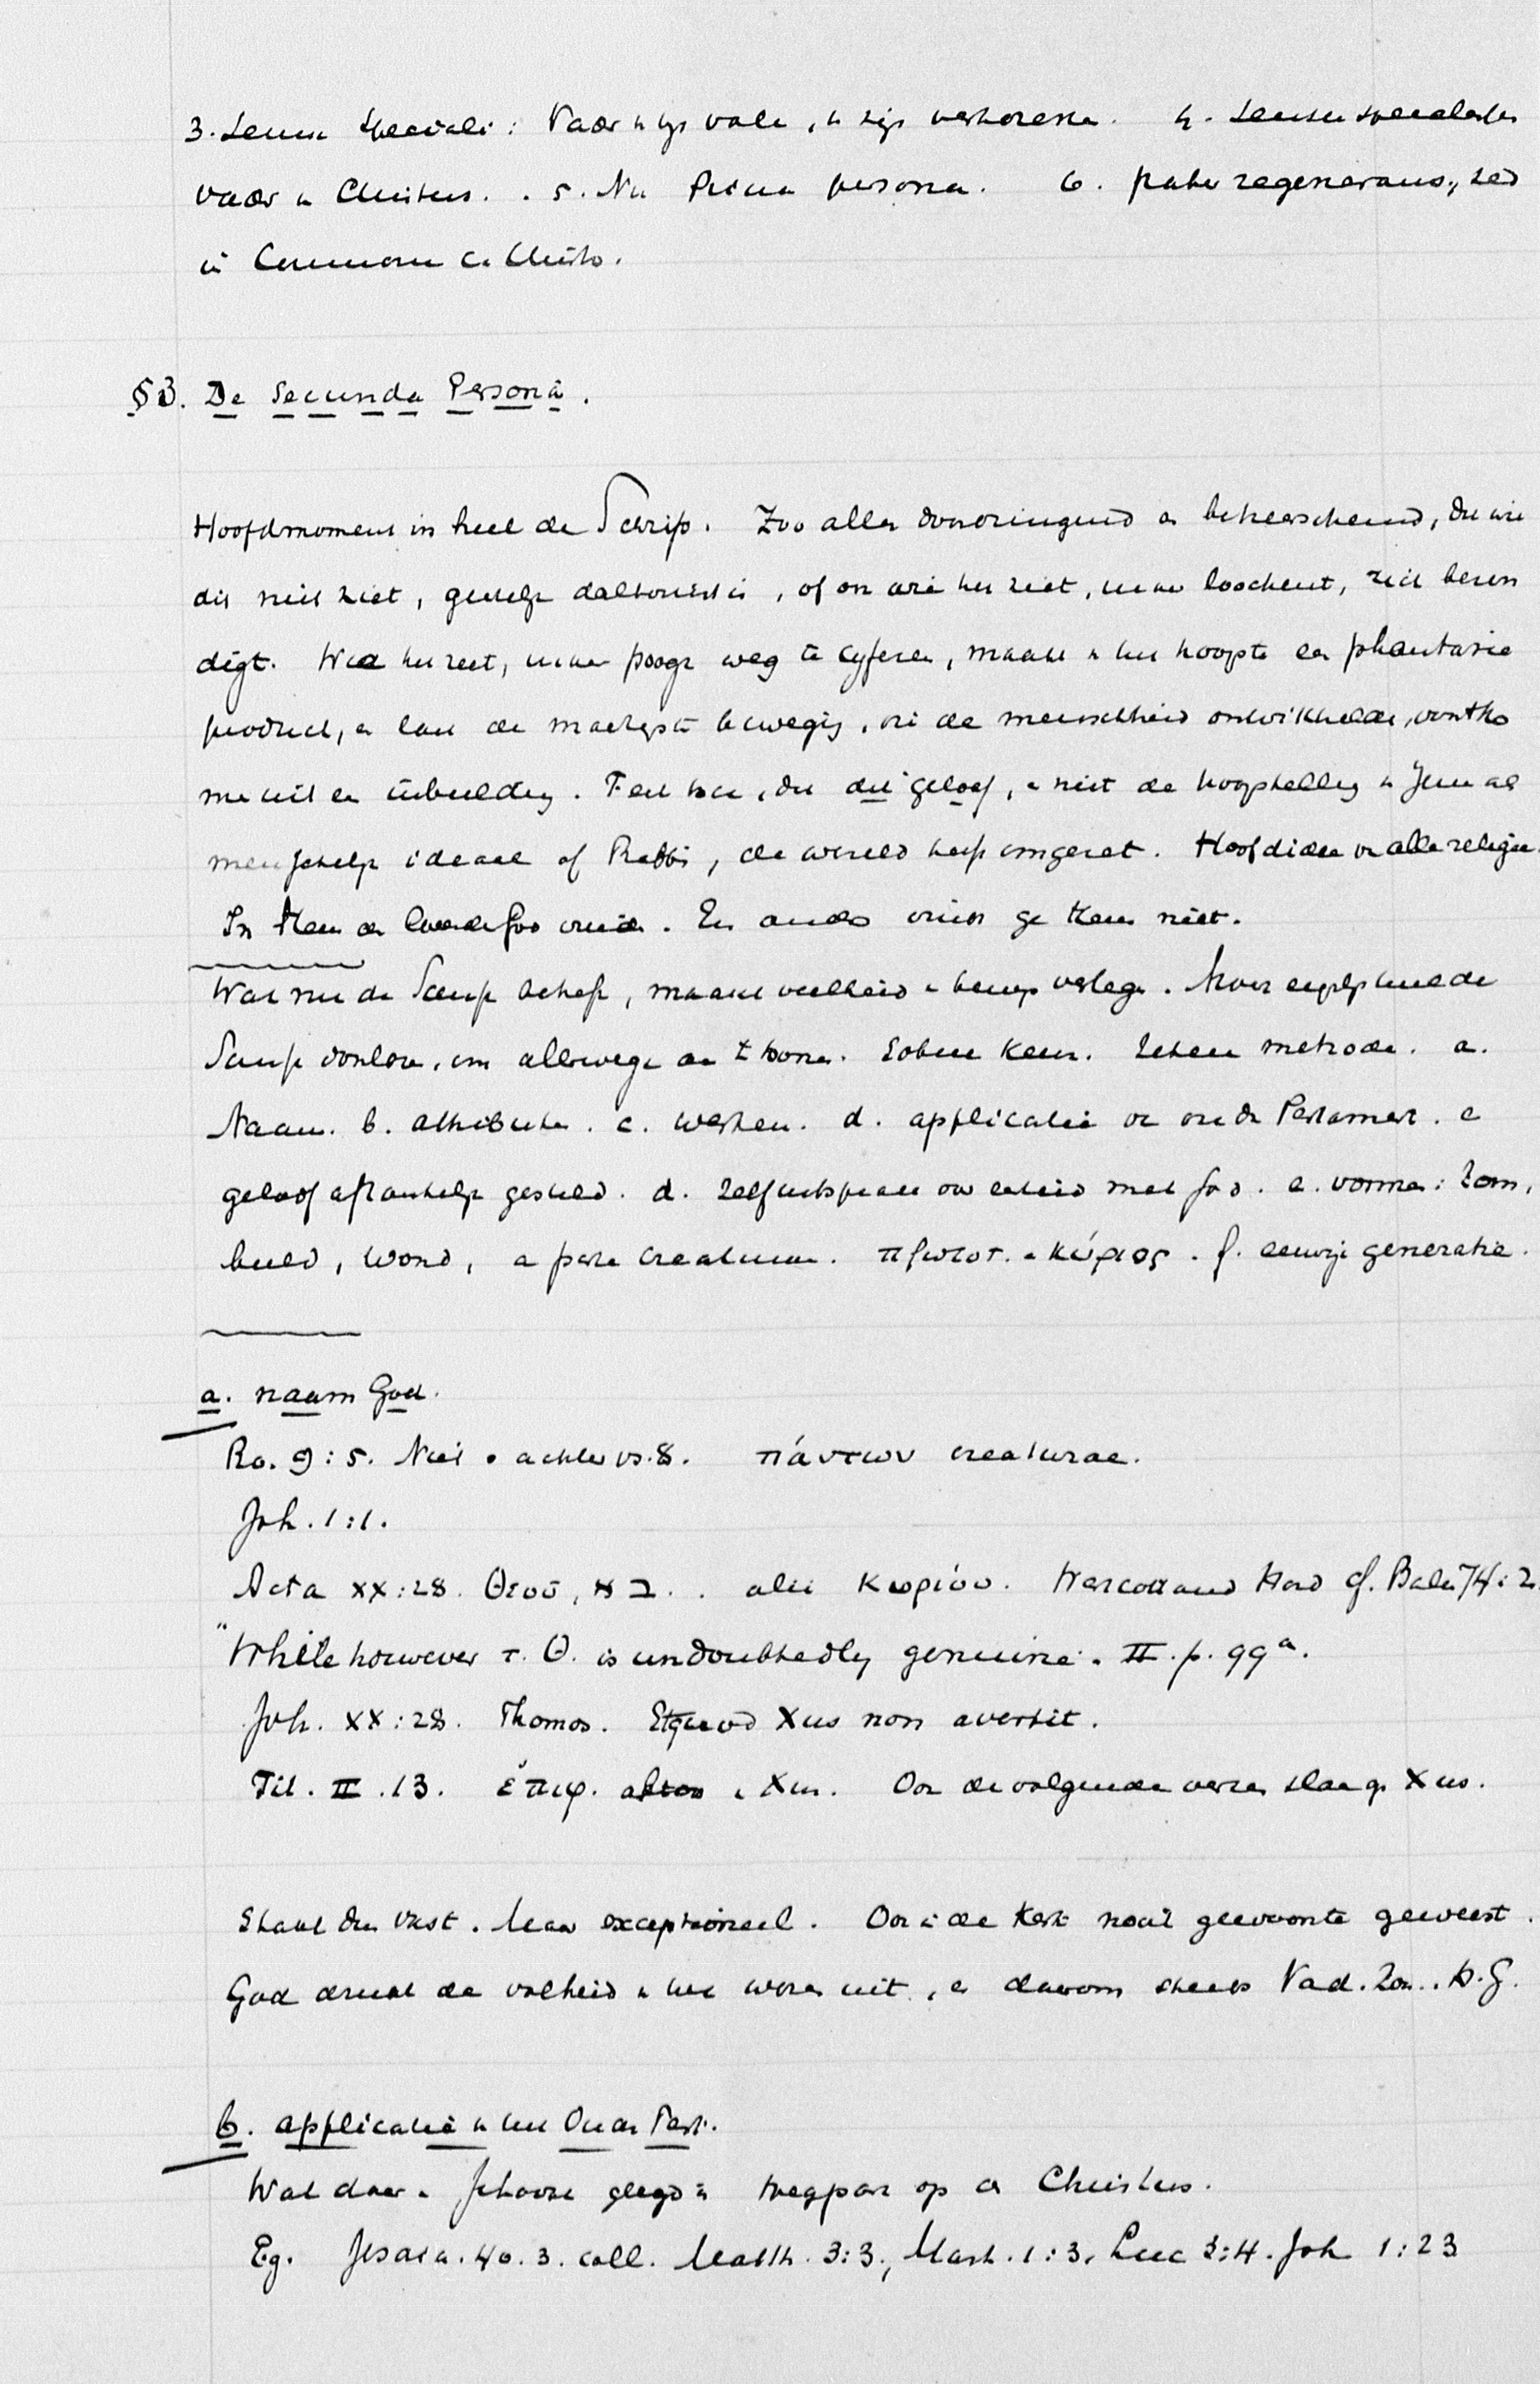 3. Sensu speciali: Vader v zijn volk, v zijn verkorenen. 4.
Vader v Christus. . 5. Nu Prima persona. 6. pater regenerans, sed
in Communione c. Christo.
§ 3. De Secunda Personâ.
Hoofdmoment in heel de Schrift. Zoo alles doordringend en beheerschend, dat wie
dit niet ziet, geestelijk daltonist is, of om wie het ziet, maar loochent, zich bezon
digt. Wie het ziet, maar poogt weg te cyferen, maakt v het hoogste een phantasie
product, en laat de machtigste beweging, die de menschheid ontwikkelde, voortko
me uit een inbeelding. Feit toch, dat dit geloof, en niet de hoogstelling v Jezus als
menschelijk ideaal of Rabbi, de wereld heeft omgezet. Hoofdidee v alle religie.
In Hem de levende God vinden. En anders vindt ge Hem niet.
Wat nu de Schrift betreft, maakt veelheid v bewijs verlegen. Men moest eigenlijk heel de
Schrift doorloopen, om allerwege aan te toonen. Sobere keur. Zekere methode. a.
Naam. b. attributen. c. werken. d. applicatie v oude Testament. e
geloof afhankelijk gesteld. d. Zelfuitspraak over eenheid met God. e. vormen: Zoon,
beeld, woord, a parte creaturarum. πρωτοτ. en κύριος. f. eeuwige generatie.
a. naam God.
Ro. 9:5. Niet • achter vs. 8. πάντων creaturae.
Joh. 1:1.
Acta XX:28. Θεοῦ, א B. . alii Κυρίου. Westcott and Hord cf.
"While however τ. Θ. is undoubtedly genuine. II. p. 99a.
Joh. XX:28. Thomas. Et quod Xus non avertit.
Tit. II. 13. ἐπιφ. altoos v Xus. Ook de volgende verzen slaan op Xus.
Staat dus vast. Maar exceptioneel. Ook in de Kerk nooit gewoonte geweest.
God drukt de volheid v het wezen uit, en daarom steeds Vad. Zon.. H.G.
b. applicatie v het Oude Test.
Wat daar v Jehova gezegd is toegepast op den Christus.
Eg. Jesaia. 40. 3. coll. Matth. 3:3, Mark. 1:3, Luc 3:4. Joh 1:23